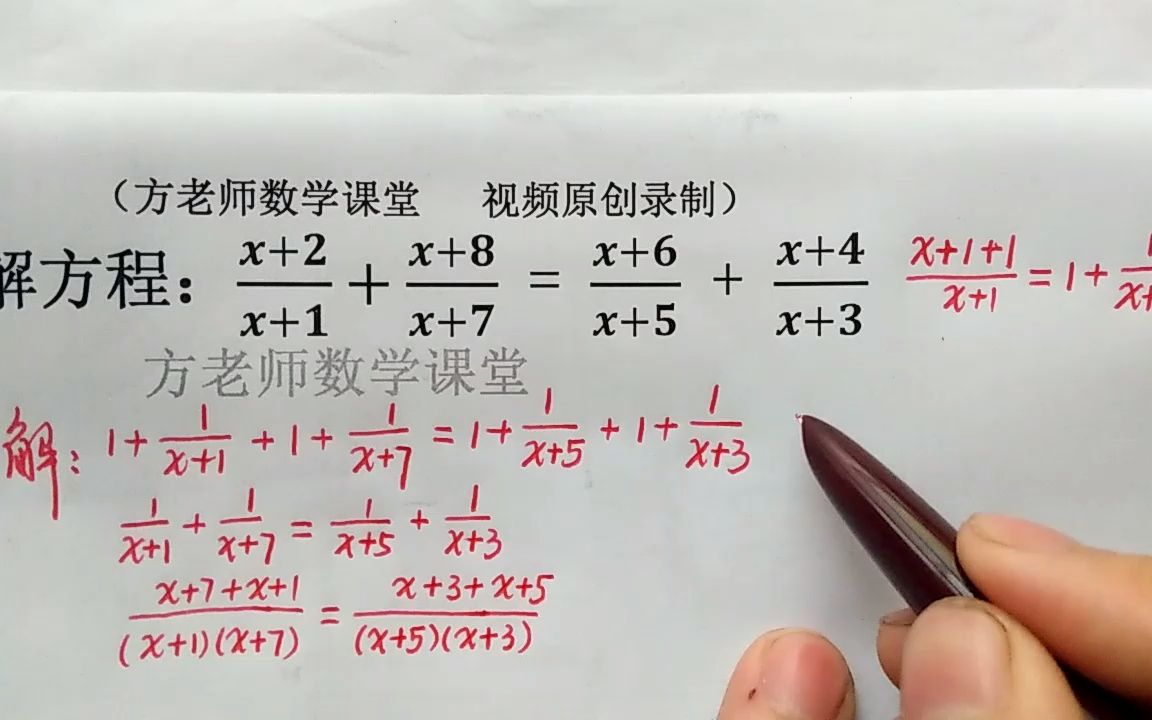 （方老师数学课堂 视频原创录制）
解方程：(x+2)/(x+1) + (x+8)/(x+7) = (x+6)/(x+5) + (x+4)/(x+3)
(x+1+1)/(x+1) = 1+
方老师数学课堂
解：1+1/(x+1) + 1+1/(x+7) = 1+1/(x+5) + 1+1/(x+3)
1/(x+1) + 1/(x+7) = 1/(x+5) + 1/(x+3)
(x+7+x+1)/((x+1)(x+7)) = (x+3+x+5)/((x+5)(x+3))